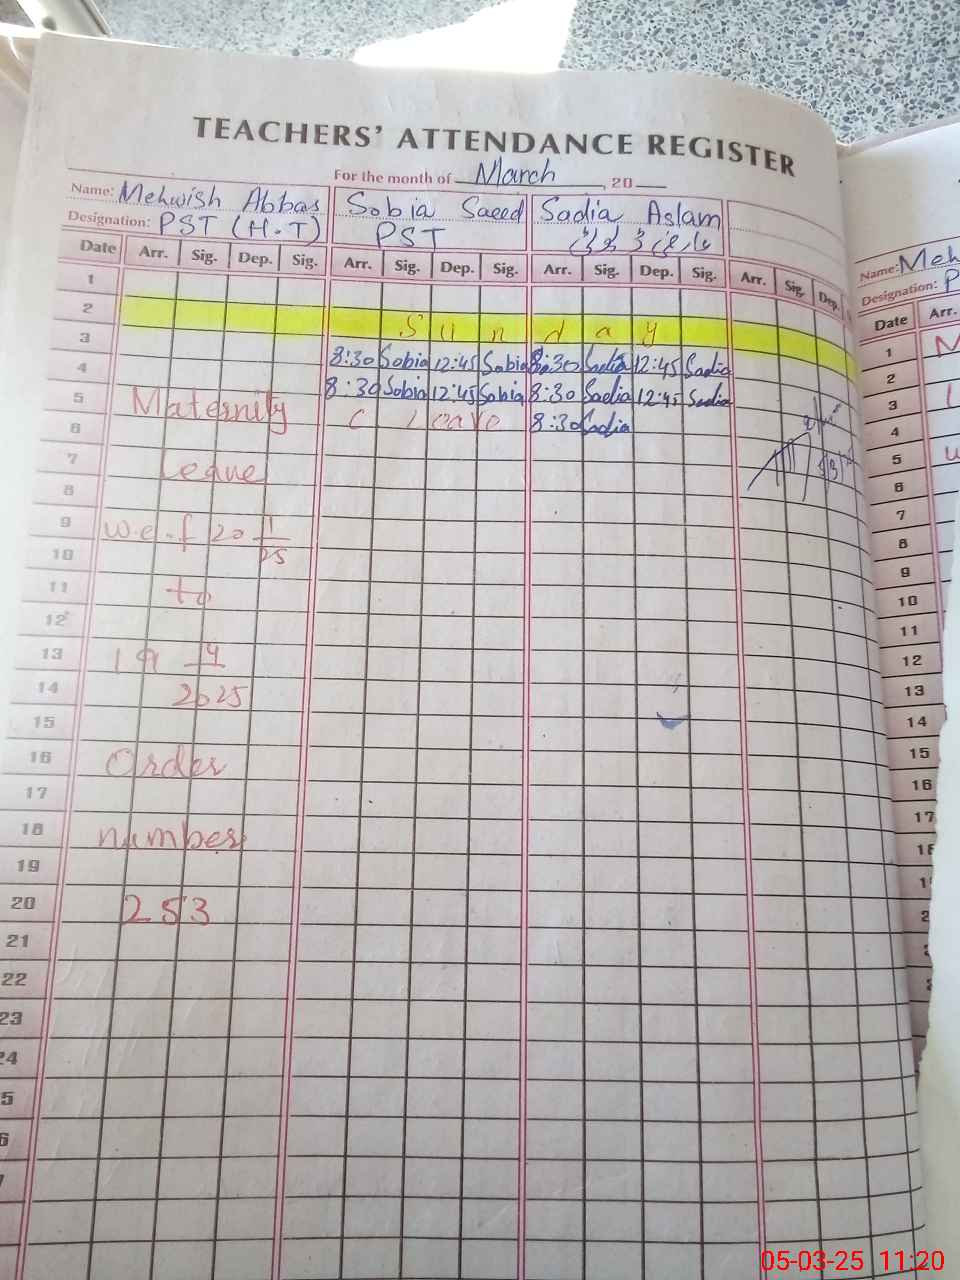 TEACHERS' ATTENDANCE REGISTER
For the month of March, 20
Name: Mehwish Abbas Sobia Saeed Sadia Aslam
Designation: PST (H.T) PST
Date Arr. Sig. Dep. Sig. Arr. Sig. Dep. Sig. Arr. Sig. Dep. Sig. Arr. Sig. Dep.
1
2 Sunday
3 8:30 Sobia 12:45 Sobia 8:30 Sadia 12:45 Sadia
4 8:30 Sobia 12:45 Sobia 8:30 Sadia 12:45 Sadia
5 Maternity C Leave 8:30 Sadia
6
7 Leave
8
9 w.e.f 20 11
10 25
11 to
12
13 19 4
14 2025
15
16 Order
17
18 number
19
20 253
21
22
23
24
5
6
Name: Meh
Designation: P
Date Arr.
1 M
2
3
4
5
6
7
8
9
10
11
12
13
14
15
16
17
18
05-03-25 11:20